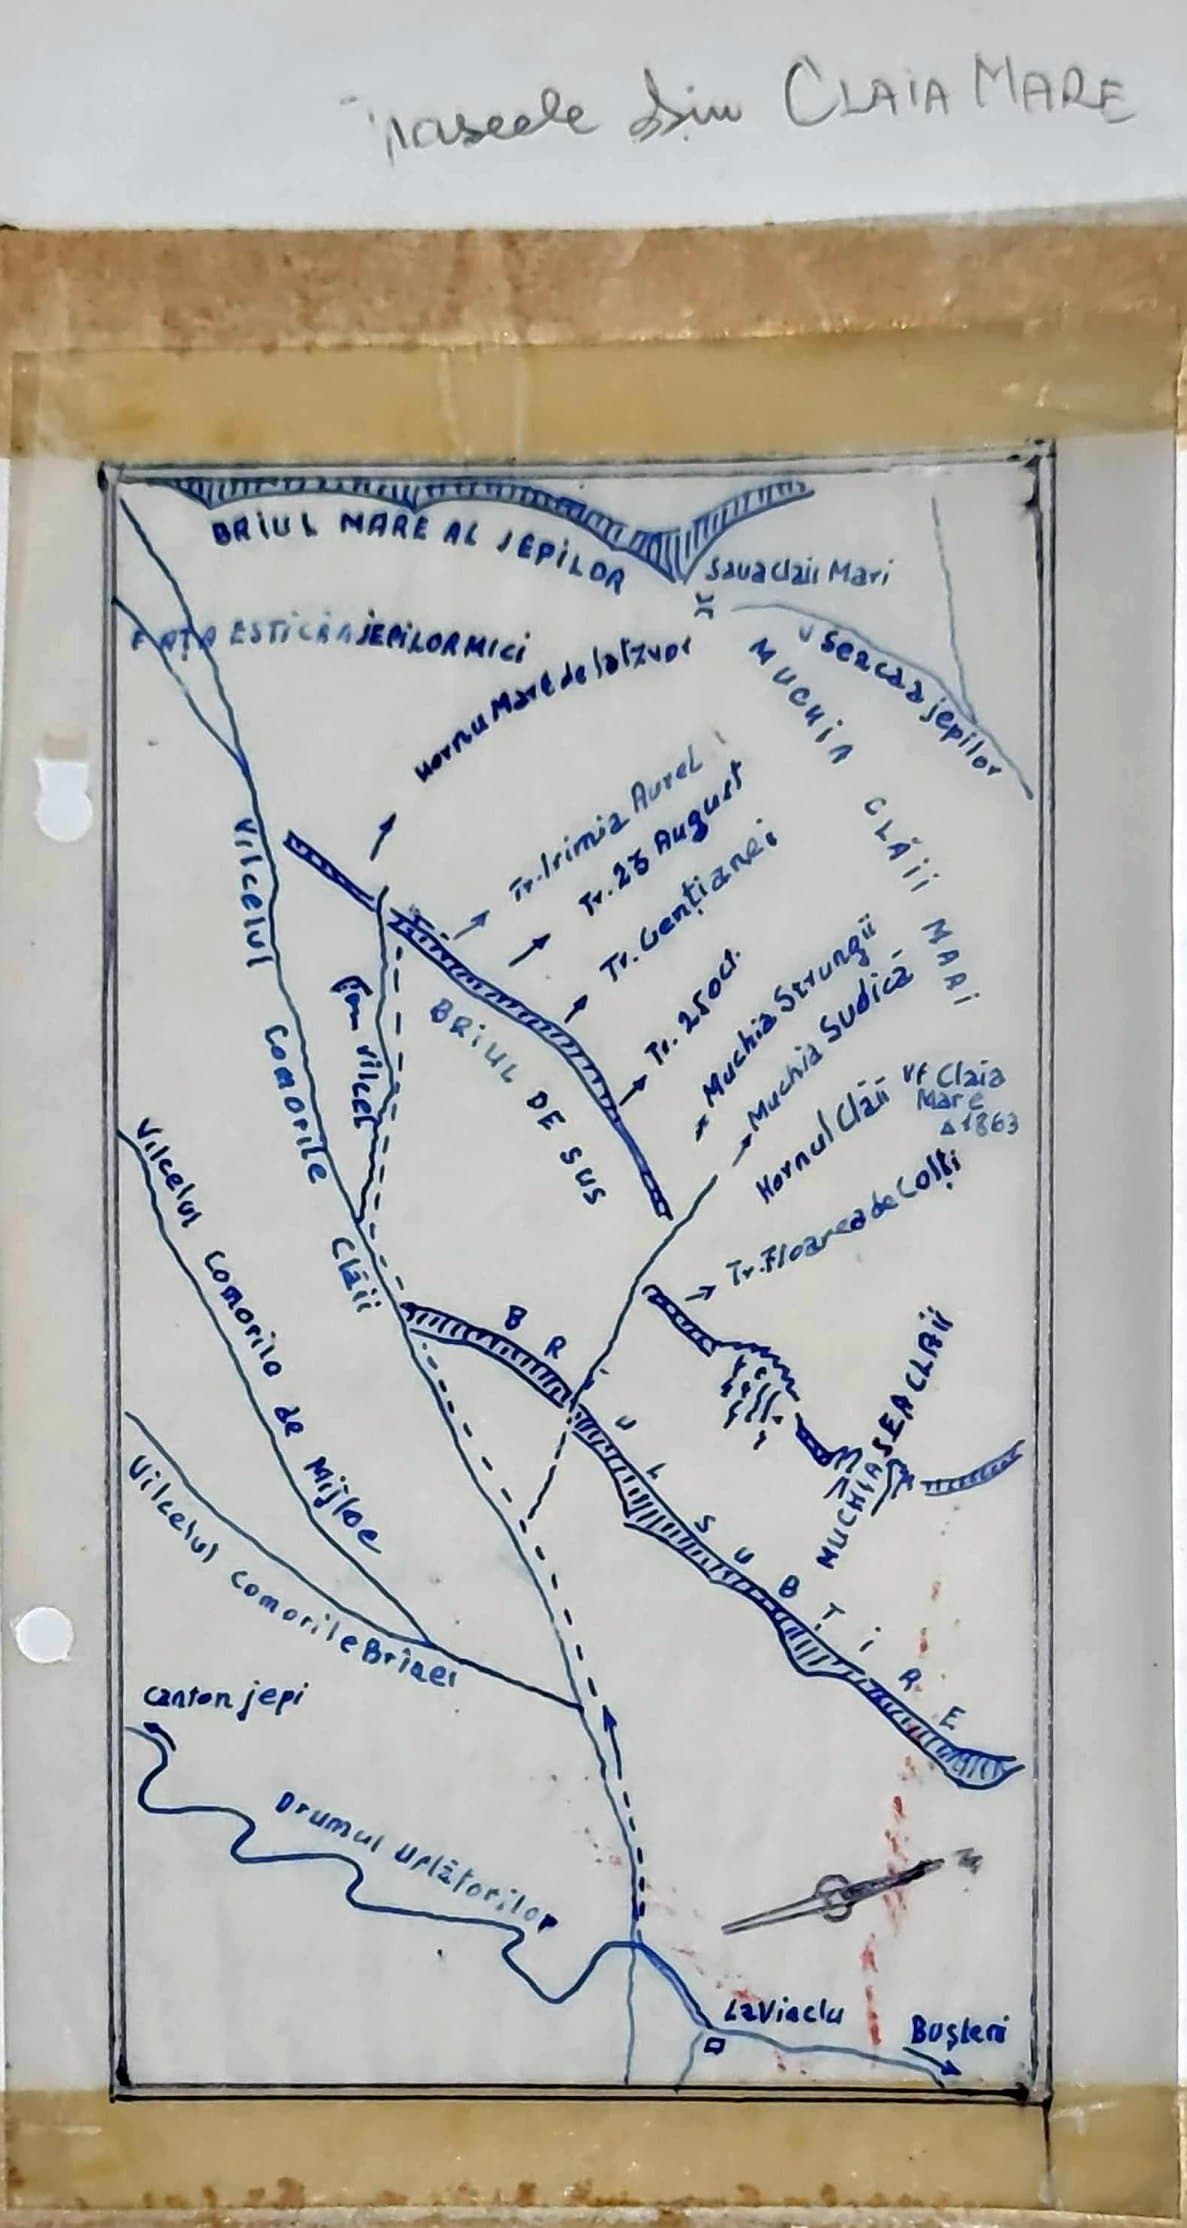 Traseele din CLAIA MARE
BRIUL MARE AL JEPILOR
Saua Claii Mari
FAȚA ESTICĂ A JEPILOR MICI
V Seacă a jepilor
Hornu Mare de la Izvor
MUCHIA CLĂII MARI
Tr. Irimia Aurel
Tr. 23 August
Tr. Gențianei
Tr. 25 Oct.
Muchia Strungii
Muchia Sudică
Hornul Clăii
Vf Claia
Mare
△1863
Tr. Floarea de Colți
Vilcelul Comorile Clăii
Fon vilcel
BRIUL DE SUS
Vilcelul Comorila de Mijloc
BRUL SUBTIRE
MUCHIA SEA CLAII
Vilcelul comorile Brinei
Canton jepi
Drumul Urlătorilor
La Vinclu
Bușteni